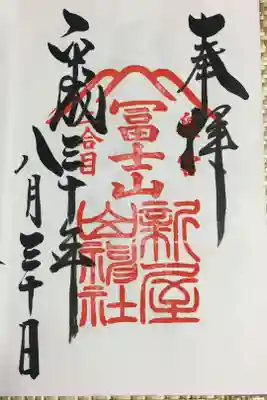 奉拝
冨士山
新屋
山神社
六合目
平成三十年
八月三十日